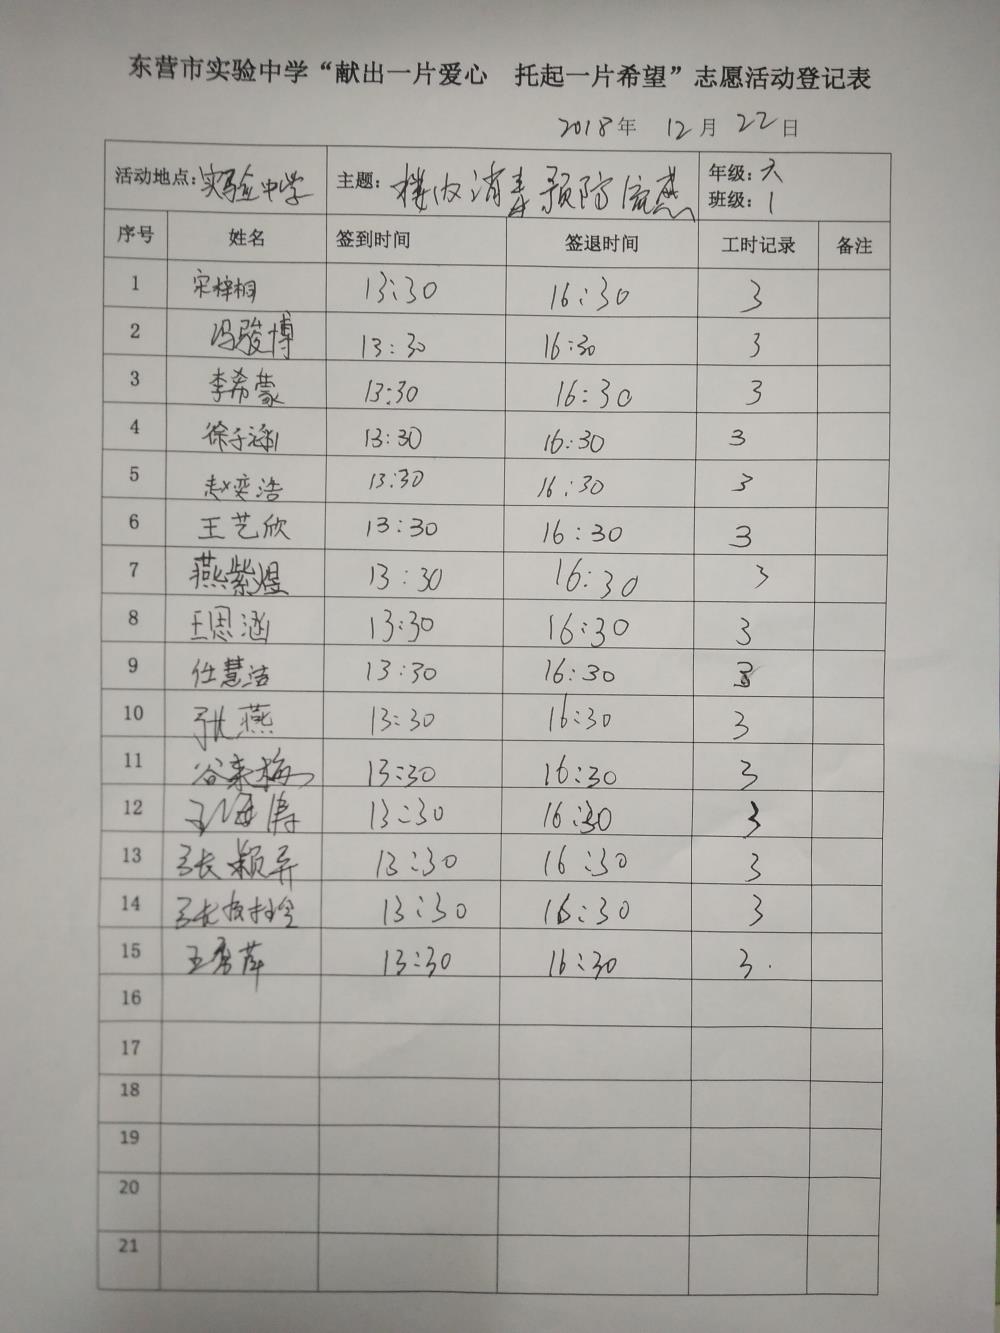 东营市实验中学“献出一片爱心 托起一片希望”志愿活动登记表
2018年 12月 22日
活动地点:实验中学 主题:楼内消毒预防流感 年级:六
班级:1
序号 姓名 签到时间 签退时间 工时记录 备注
1 宋梓桐 13:30 16:30 3
2 冯骏博 13:30 16:30 3
3 李希蒙 13:30 16:30 3
4 徐子涵 13:30 16:30 3
5 赵奕浩 13:30 16:30 3
6 王艺欣 13:30 16:30 3
7 燕紫煜 13:30 16:30 3
8 王思涵 13:30 16:30 3
9 任慧洁 13:30 16:30 3
10 张燕 13:30 16:30 3
11 谷来梅 13:30 16:30 3
12 王海涛 13:30 16:30 3
13 张颖异 13:30 16:30 3
14 张 13:30 16:30 3
15 王 萍 13:30 16:30 3
16
17
18
19
20
21